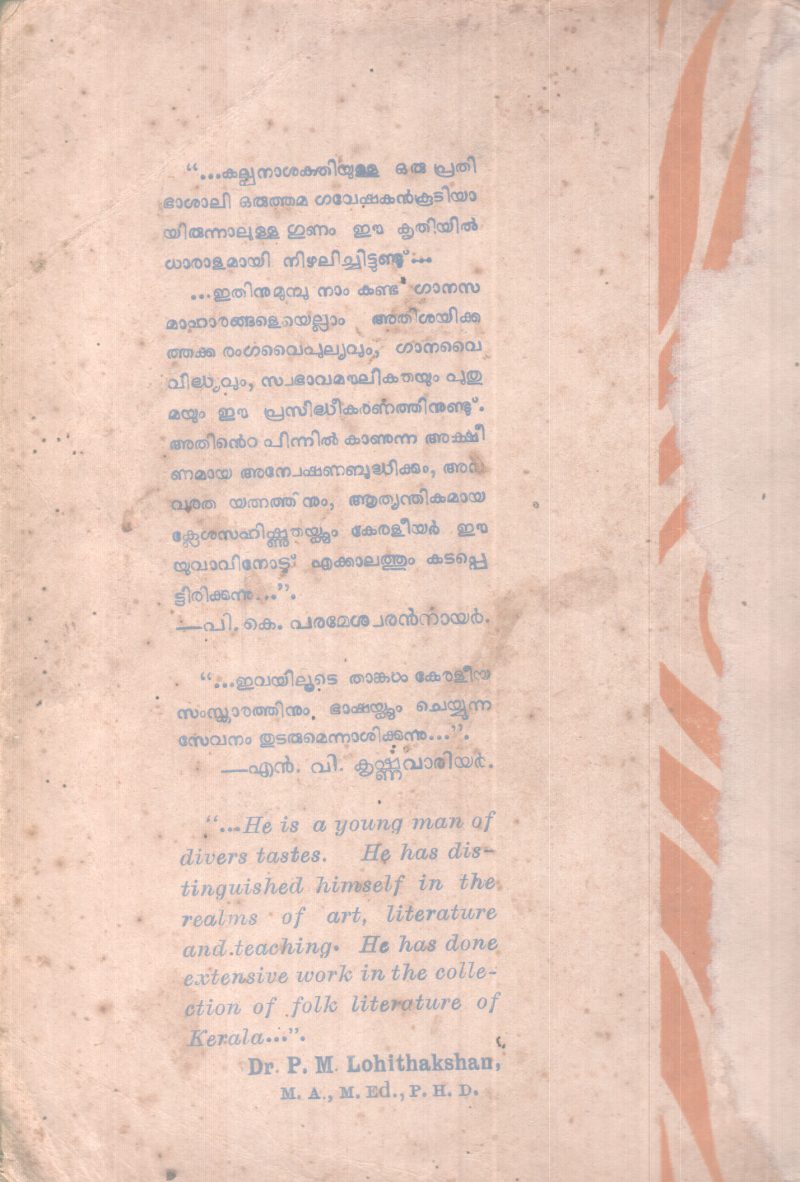 “...കല്പനാശക്തിയുള്ള ഒരു പ്രതി
ഭാശാലി ഒരുത്തമ ഗവേഷകൻകൂടിയാ
യിരുന്നാലുള്ള ഗുണം ഈ കൃതിയിൽ
ധാരാളമായി നിഴലിച്ചിട്ടുണ്ട്...
...ഇതിനുമുമ്പു നാം കണ്ട ഗാനസ
മാഹാരങ്ങളെയെല്ലാം അതിശയിക്ക
ത്തക്ക രംഗവൈപുല്യവും, ഗാനവൈ
വിദ്ധ്യവും, സ്വഭാവമൗലികതയും പുതു
മയും ഈ പ്രസിദ്ധീകരണത്തിനുണ്ട്.
അതിൻെറ പിന്നിൽ കാണുന്ന അക്ഷീ
ണമായ അന്വേഷണബുദ്ധിക്കും, അന
വരത യത്നത്തിനും, ആത്യന്തികമായ
ക്ലേശസഹിഷ്ണുതയ്ക്കും കേരളീയർ ഈ
യുവാവിനോട് എക്കാലത്തും കടപ്പെ
ട്ടിരിക്കുന്നു...”.
—പി. കെ. പരമേശ്വരൻനായർ.
“...ഇവയിലൂടെ താങ്കൾ കേരളീയ
സംസ്ക്കാരത്തിനും, ഭാഷയ്ക്കും ചെയ്യുന്ന
സേവനം തുടരുമെന്നാശിക്കുന്നു...”.
—എൻ. വി. കൃഷ്ണവാരിയർ.
“...He is a young man of
divers tastes. He has dis-
tinguished himself in the
realms of art, literature
and teaching. He has done
extensive work in the colle-
ction of folk literature of
Kerala...”.
Dr. P. M. Lohithakshan,
M. A., M. Ed., P. H. D.